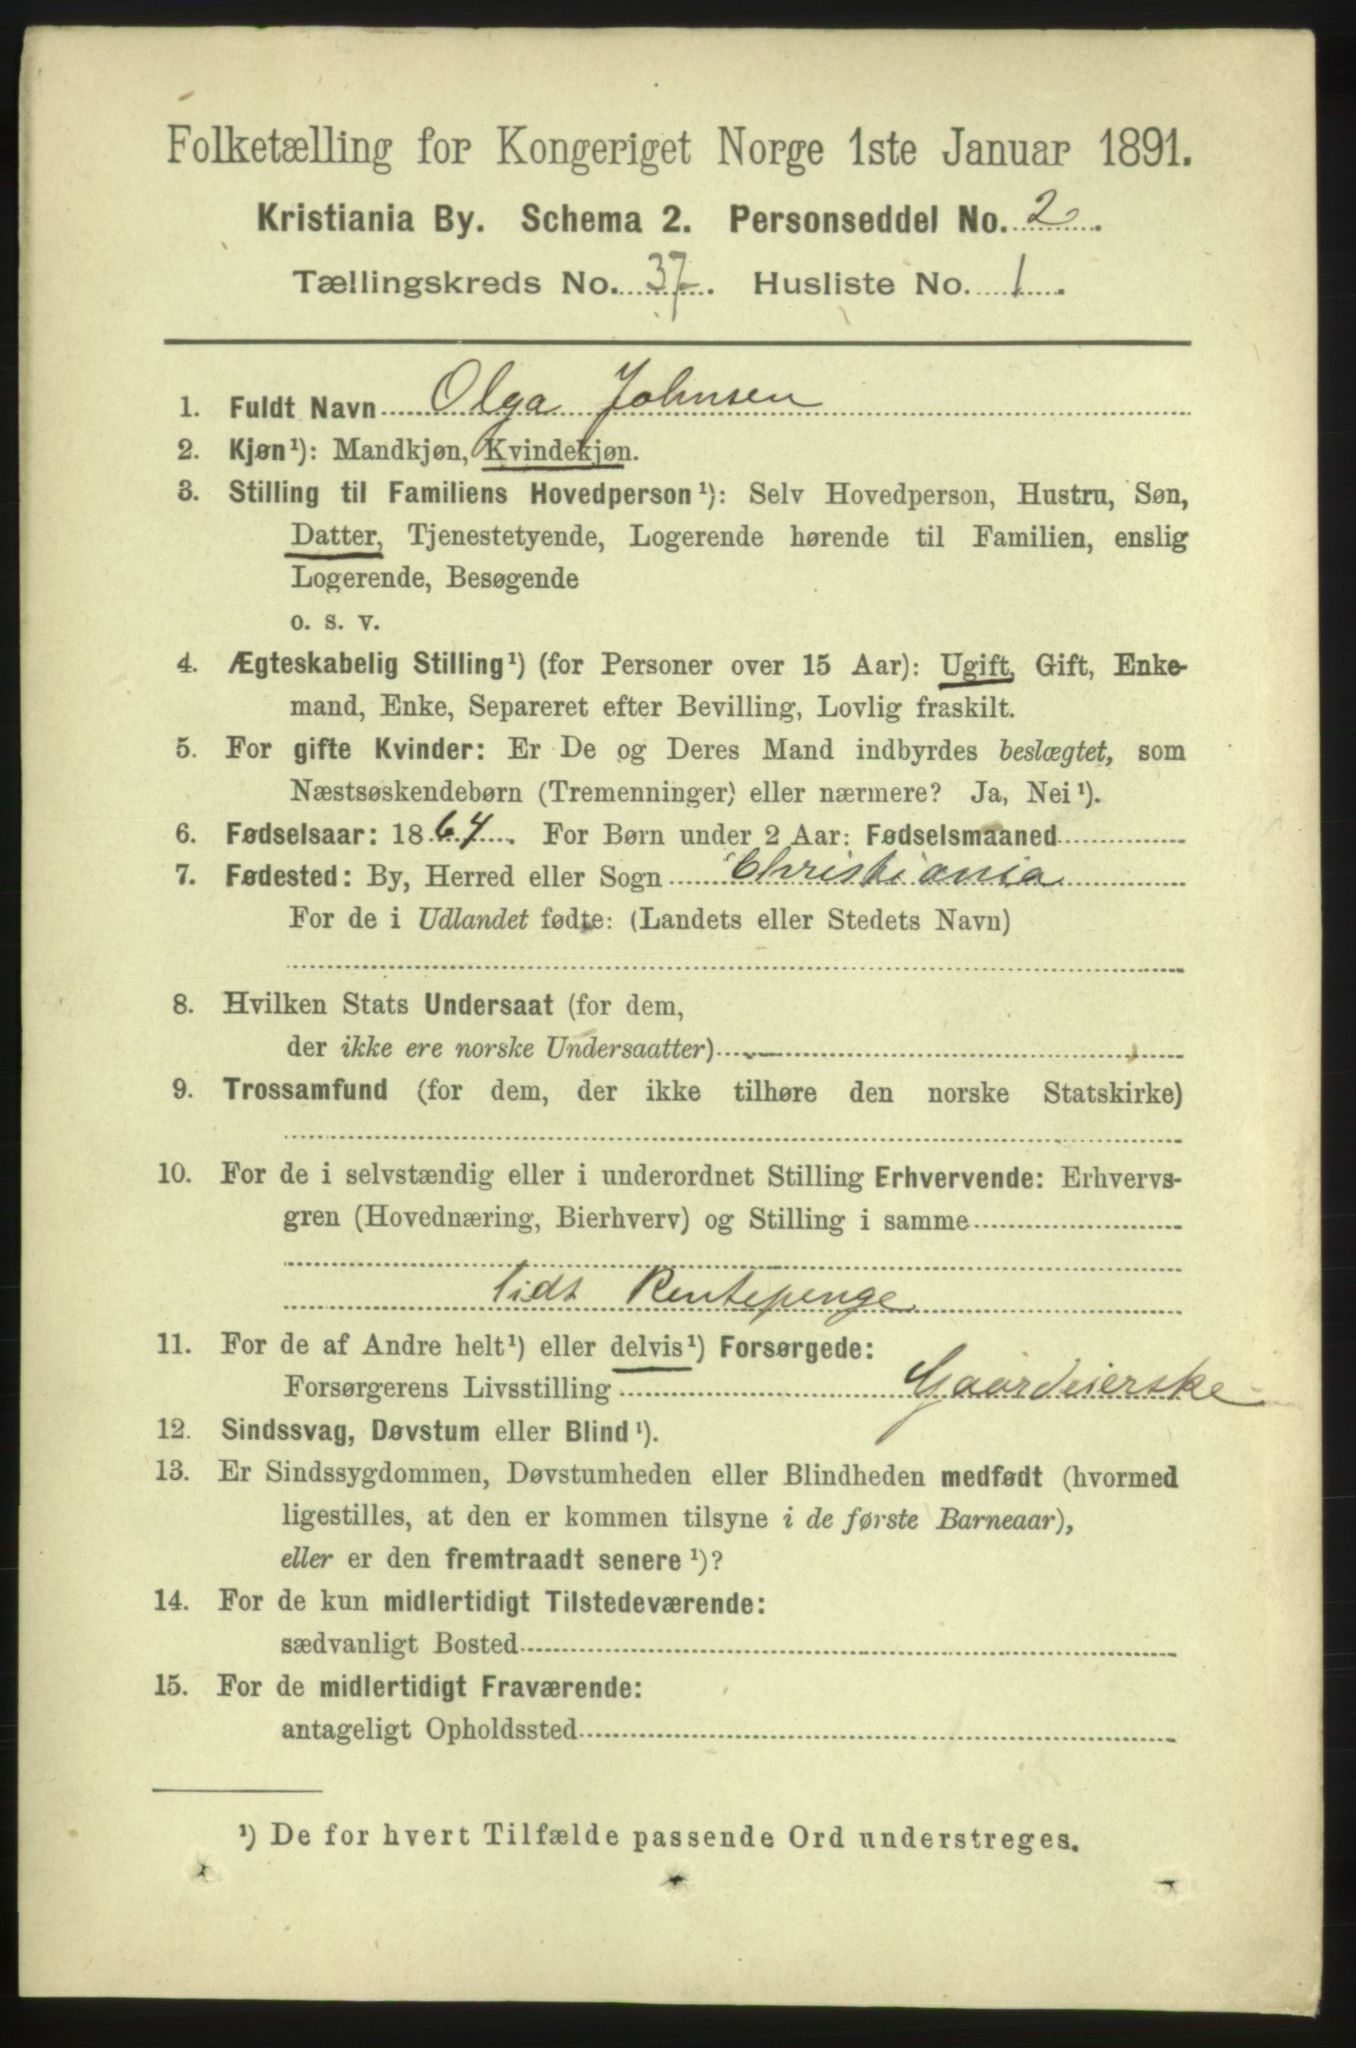 Folketælling for Kongeriget Norge 1ste Januar 1891.
Kristiania By. Schema 2. Personseddel No. 2.
Tællingskreds No. 37. Husliste No. 1.
1. Fuldt Navn Olga Johnsen
2. Kjøn¹): Mandkjøn, Kvindekjøn.
3. Stilling til Familiens Hovedperson¹): Selv Hovedperson, Hustru, Søn,
Datter, Tjenestetyende, Logerende hørende til Familien, enslig
Logerende, Besøgende
o. s. v.
4. Ægteskabelig Stilling¹) (for Personer over 15 Aar): Ugift, Gift, Enke-
mand, Enke, Separeret efter Bevilling, Lovlig fraskilt.
5. For gifte Kvinder: Er De og Deres Mand indbyrdes beslægtet, som
Næstsøskendebørn (Tremenninger) eller nærmere? Ja, Nei¹).
6. Fødselsaar: 1864. For Børn under 2 Aar: Fødselsmaaned
7. Fødested: By, Herred eller Sogn Christiania
For de i Udlandet fødte: (Landets eller Stedets Navn)
8. Hvilken Stats Undersaat (for dem,
der ikke ere norske Undersaatter)
9. Trossamfund (for dem, der ikke tilhøre den norske Statskirke)
10. For de i selvstændig eller i underordnet Stilling Erhvervende: Erhvervs-
gren (Hovednæring, Bierhverv) og Stilling i samme
lidt Rentepenge
11. For de af Andre helt¹) eller delvis¹) Forsørgede:
Forsørgerens Livsstilling Gaardeierske
12. Sindssvag, Døvstum eller Blind¹).
13. Er Sindssygdommen, Døvstumheden eller Blindheden medfødt (hvormed
ligestilles, at den er kommen tilsyne i de første Barneaar),
eller er den fremtraadt senere¹)?
14. For de kun midlertidigt Tilstedeværende:
sædvanligt Bosted
15. For de midlertidigt Fraværende:
antageligt Opholdssted
¹) De for hvert Tilfælde passende Ord understreges.